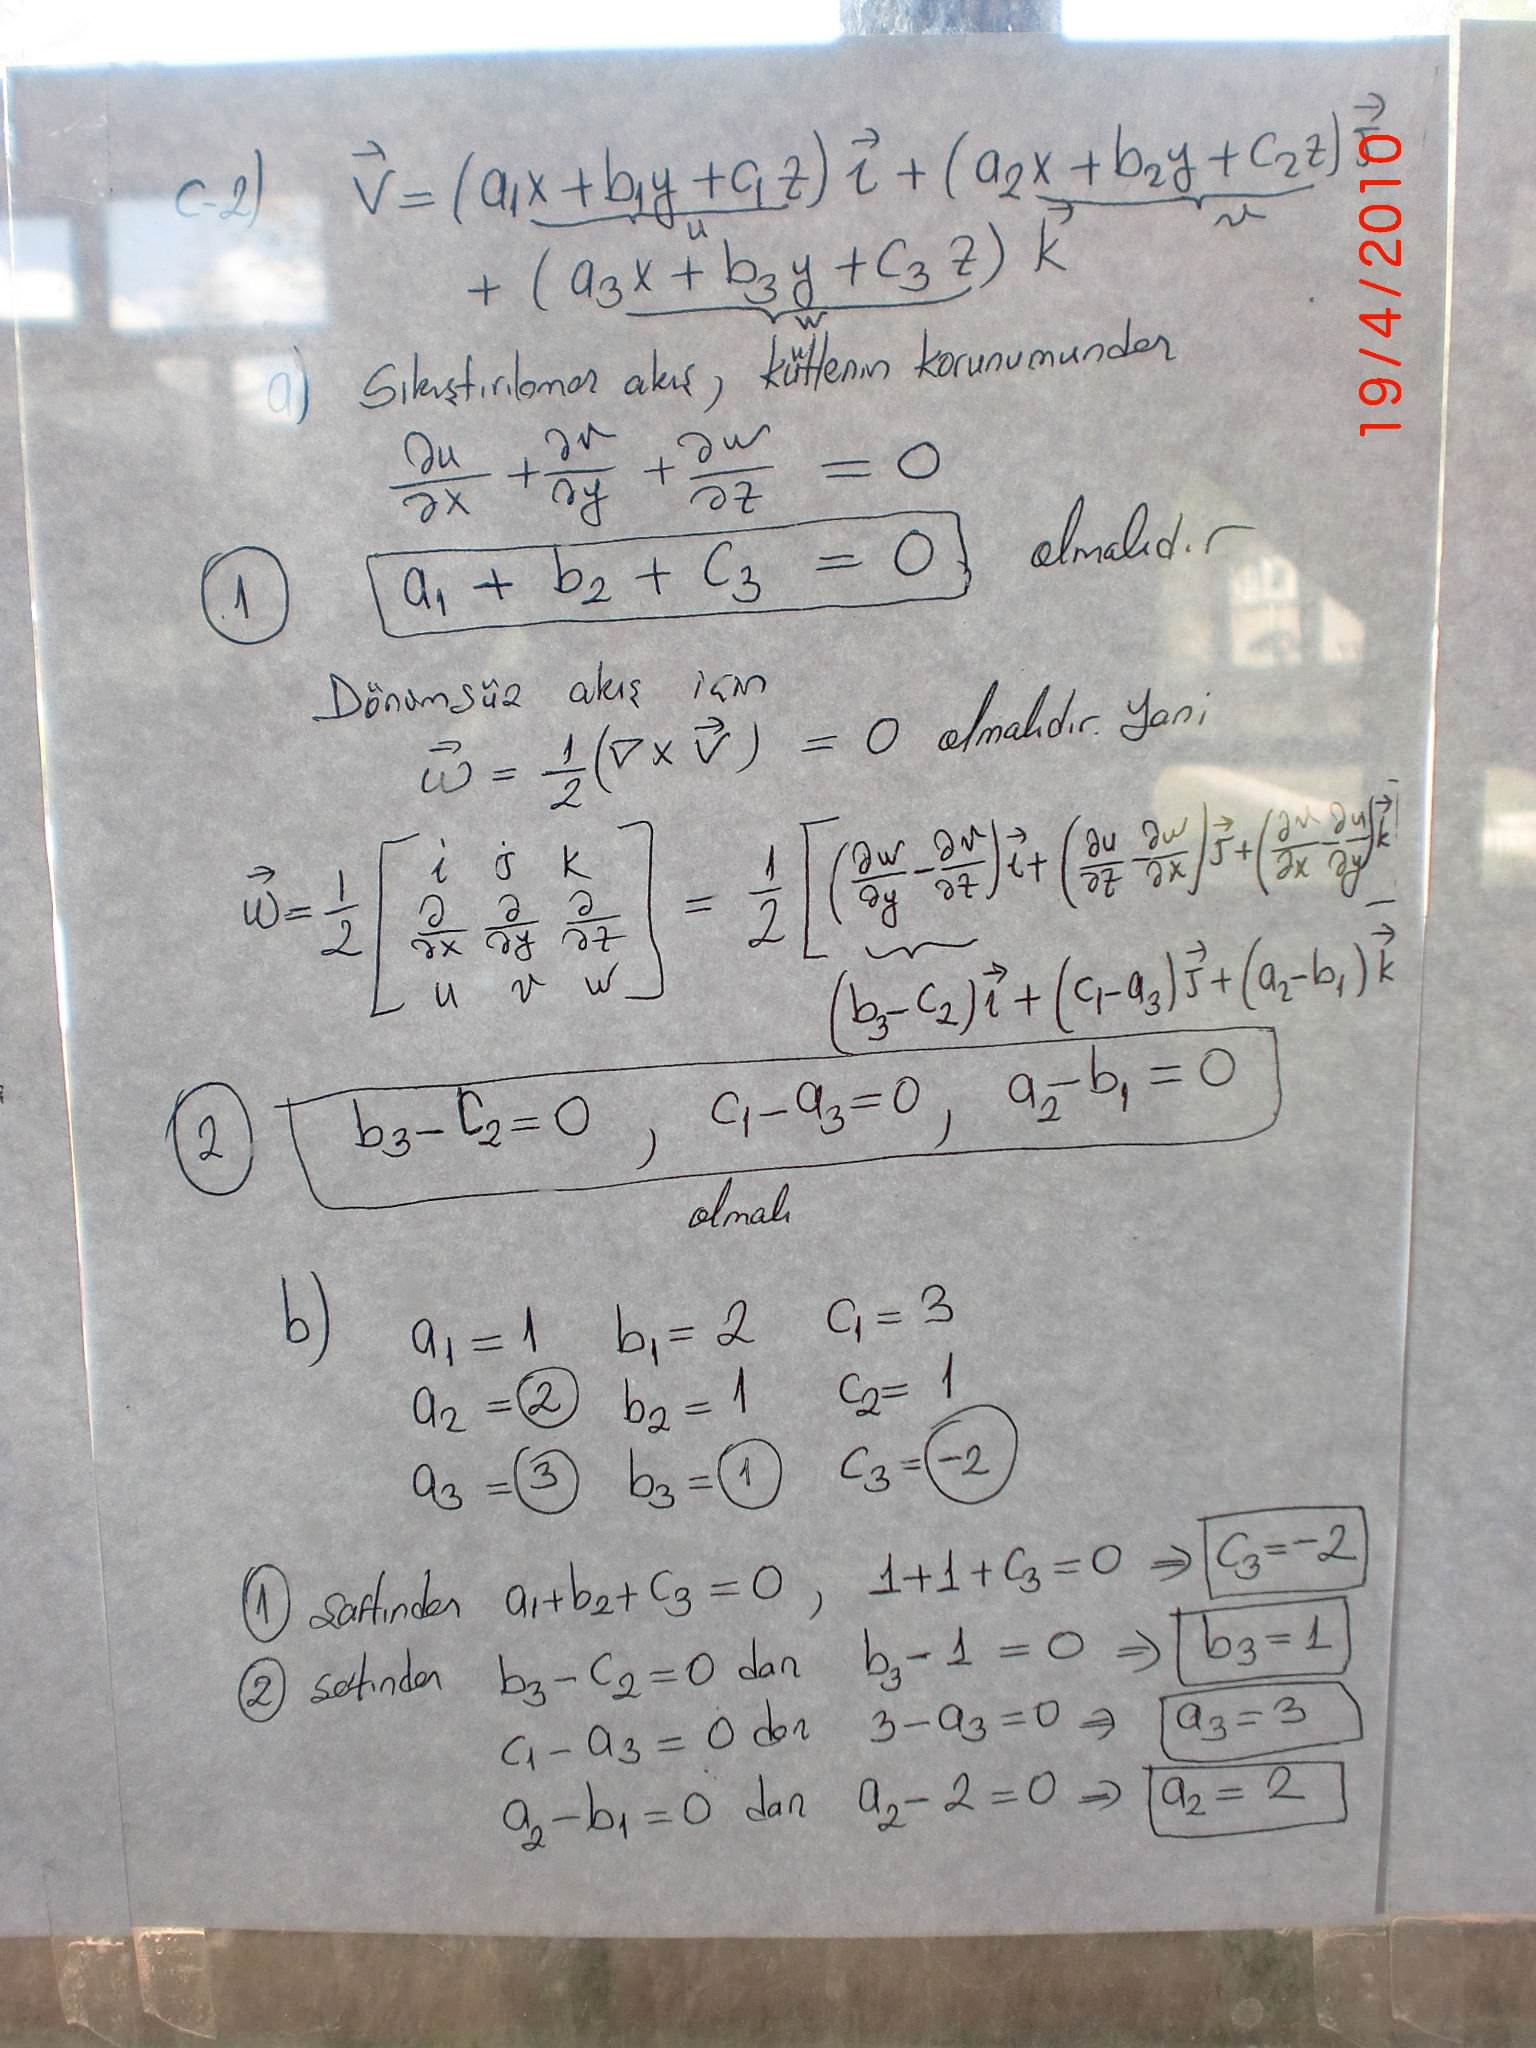 C-2) V⃗ = (a₁x + b₁y + c₁z) i⃗ + (a₂x + b₂y + c₂z) j⃗
u v
+ (a₃x + b₃y + c₃z) k⃗
w
a) Sıkıştırılamaz akış, kütlenin korunumundan
∂u/∂x + ∂v/∂y + ∂w/∂z = 0
1 a₁ + b₂ + c₃ = 0 olmalıdır
Dönümsüz akış için
w⃗ = 1/2 (∇ x V⃗) = 0 olmalıdır. Yani
w⃗ = 1/2 [ i j k ; ∂/∂x ∂/∂y ∂/∂z ; u v w ] = 1/2 [ (∂w/∂y - ∂v/∂z) i⃗ + (∂u/∂z - ∂w/∂x) j⃗ + (∂v/∂x - ∂u/∂y) k⃗ ]
(b₃ - c₂) i⃗ + (c₁ - a₃) j⃗ + (a₂ - b₁) k⃗
2 b₃ - c₂ = 0 , c₁ - a₃ = 0 , a₂ - b₁ = 0
olmalı
b) a₁ = 1 b₁ = 2 c₁ = 3
a₂ = 2 b₂ = 1 c₂ = 1
a₃ = 3 b₃ = 1 c₃ = -2
1 şartından a₁ + b₂ + c₃ = 0 , 1 + 1 + c₃ = 0 ⇒ c₃ = -2
2 şartından b₃ - c₂ = 0 dan b₃ - 1 = 0 ⇒ b₃ = 1
c₁ - a₃ = 0 dan 3 - a₃ = 0 ⇒ a₃ = 3
a₂ - b₁ = 0 dan a₂ - 2 = 0 ⇒ a₂ = 2
19/4/2010